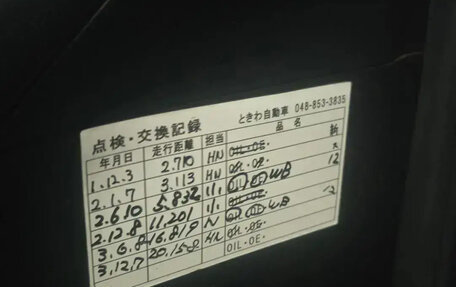 ときわ自動車 048-853-3835
点検・交換記録
年月日 走行距離 担当 品名
1.12.3 2.710 HN OIL・OE・
2.1.7 3.113 HN OIL・OE・ 12
2.6.10 5.832 OIL・OE・WB
2.12.8 11.201 OIL・OE・
3.6.8 16.819 N OIL・OE・WB 12
3.12.7 20.150 HN OIL・OE・
OIL・OE・